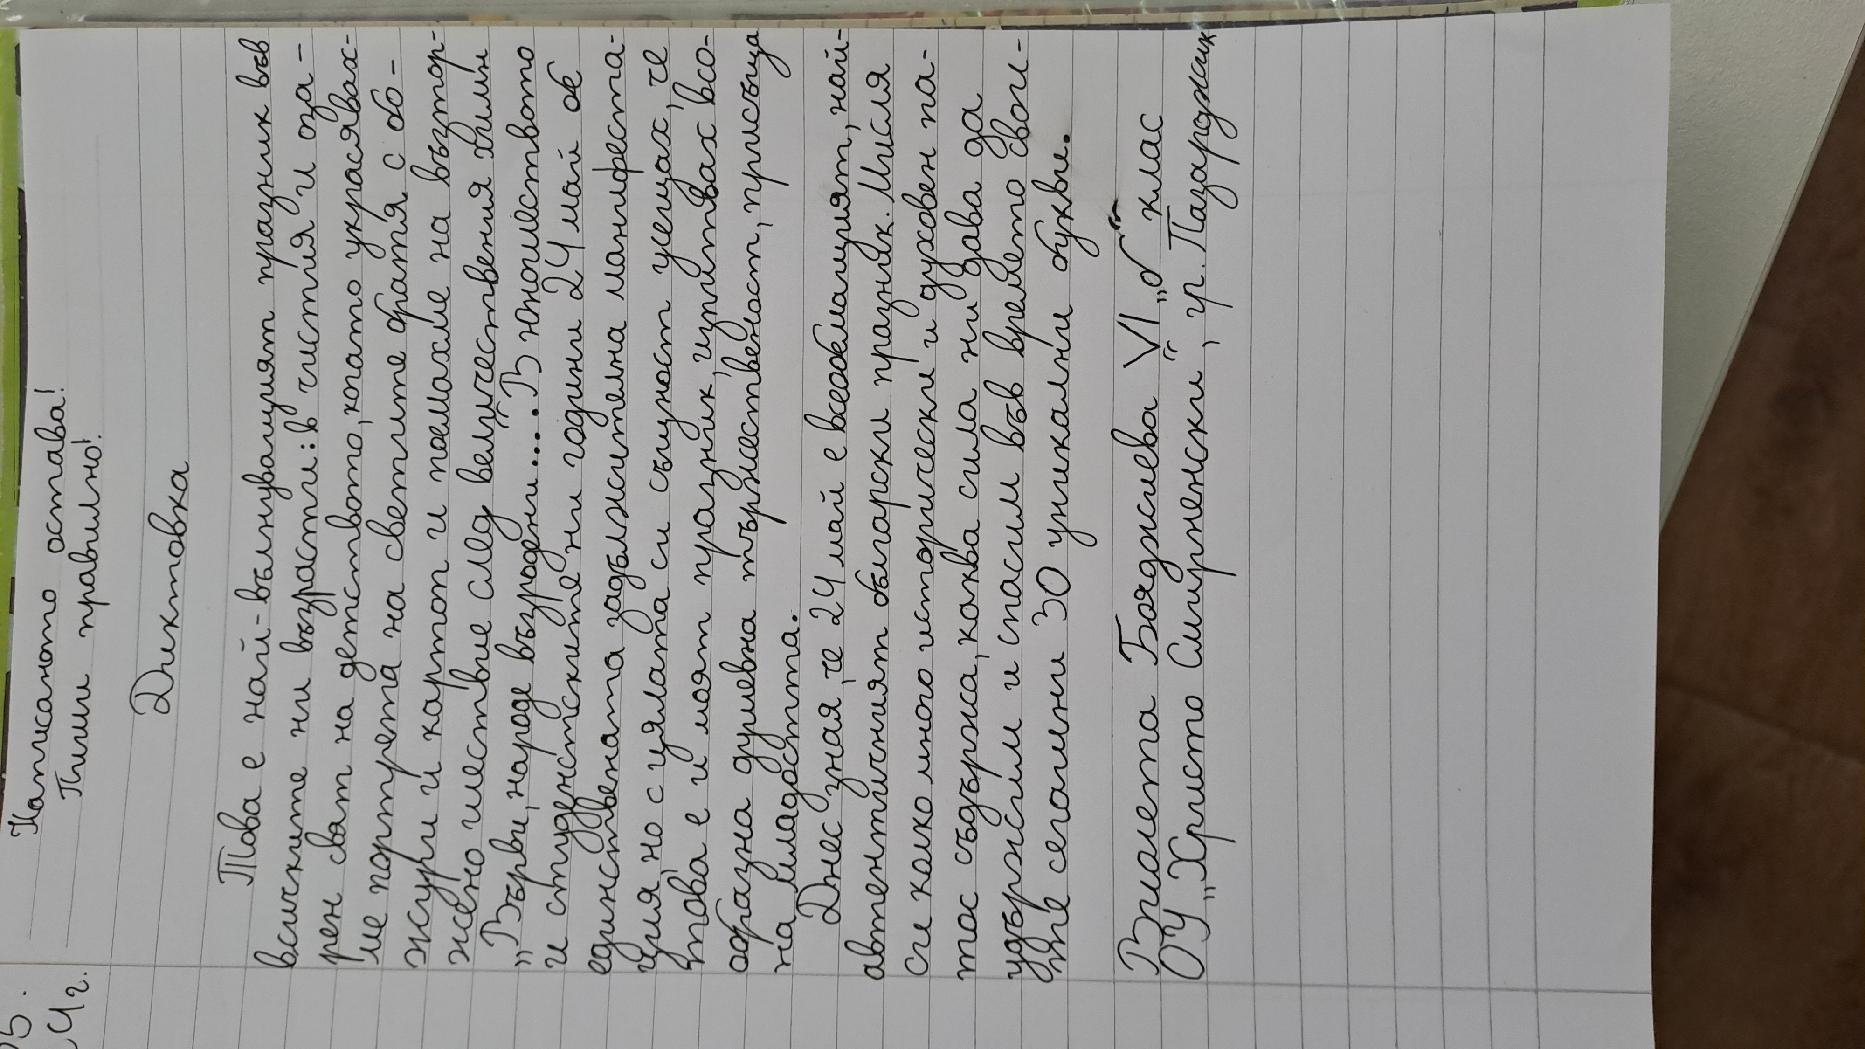 05.
24г.
Написаното остава!
Пиши правилно!
Диктовка
Това е най-вълнуващият празник във
всичките ни възрасти: в чистия и оза-
рен свят на детството, когато украсявах-
ме портрета на светите братя с бо-
жури и картон и поемахме на възтор-
жено шествие след величествения химн
„Върви, народе възродени....“ В юношеството
и студенстските ни години 24 май бе
единствената задължителна манифеста-
ция, но с цялата си същност усещах, че
това е и моят празник, изпитвах всо-
образна душевна тържественост, присъща
на младостта.
Днес зная, че 24 май е всеобемащият, най-
автентичният български празник. Мисля
си колко много исторически и духовен па-
тос съдържа, каква сила ни дава да
удържим и спасим във времето свои-
те сегашни 30 уникални букви.
Виолета Бояджиева VI „б“ клас
ОУ „Христо Смирненски“, гр. Пазарджик